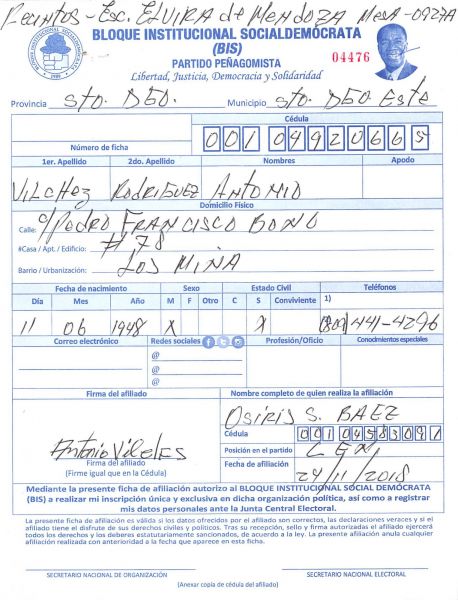 Recintos - Esc. ELVIRA de MENDOZA MESA - 0927A
BLOQUE INSTITUCIONAL SOCIALDEMÓCRATA
(BIS)
PARTIDO PEÑAGOMISTA
Libertad, Justicia, Democracia y Solidaridad
04476
Provincia Sto. DGO. Municipio Sto. DGO Este
Cédula
Número de ficha 001 0492066 5
1er. Apellido 2do. Apellido Nombres Apodo
VILCHEZ RODRIGUEZ ANTONIO
Domicilio Físico
Calle: C/PEDRO FRANCISCO BONO
#Casa / Apt. / Edificio: # 78
Barrio / Urbanización: LOS MINA
Fecha de nacimiento Sexo Estado Civil Teléfonos
Día Mes Año M F Otro C S Conviviente 1)
11 06 1948 X X (809) 441-4296
Correo electrónico Redes sociales Profesión/Oficio Conocimientos especiales
@
@
@
Firma del afiliado Nombre completo de quien realiza la afiliación
OSIRIS S. BAEZ
Cédula 001 0458309 1
Antonio Posición en el partido
Firma del afiliado
(Firme igual que en la Cédula) Fecha de afiliación 24/11/2018
Mediante la presente ficha de afiliación autorizo al BLOQUE INSTITUCIONAL SOCIAL DEMÓCRATA
(BIS) a realizar mi inscripción única y exclusiva en dicha organización política, así como a registrar
mis datos personales ante la Junta Central Electoral.
La presente ficha de afiliación es válida si los datos ofrecidos por el afiliado son correctos, las declaraciones veraces y si el
afiliado tiene el disfrute de sus derechos civiles y políticos. Tras su recepción, sello y firma autorizadas el afiliado ejercerá
todos los derechos y los deberes estatutariamente sancionados, de acuerdo a la ley. La presente afiliación anula cualquier
afiliación realizada con anterioridad a la fecha que aparece en esta ficha.
SECRETARIO NACIONAL DE ORGANIZACIÓN SECRETARIO NACIONAL ELECTORAL
(Anexar copia de cédula del afiliado)